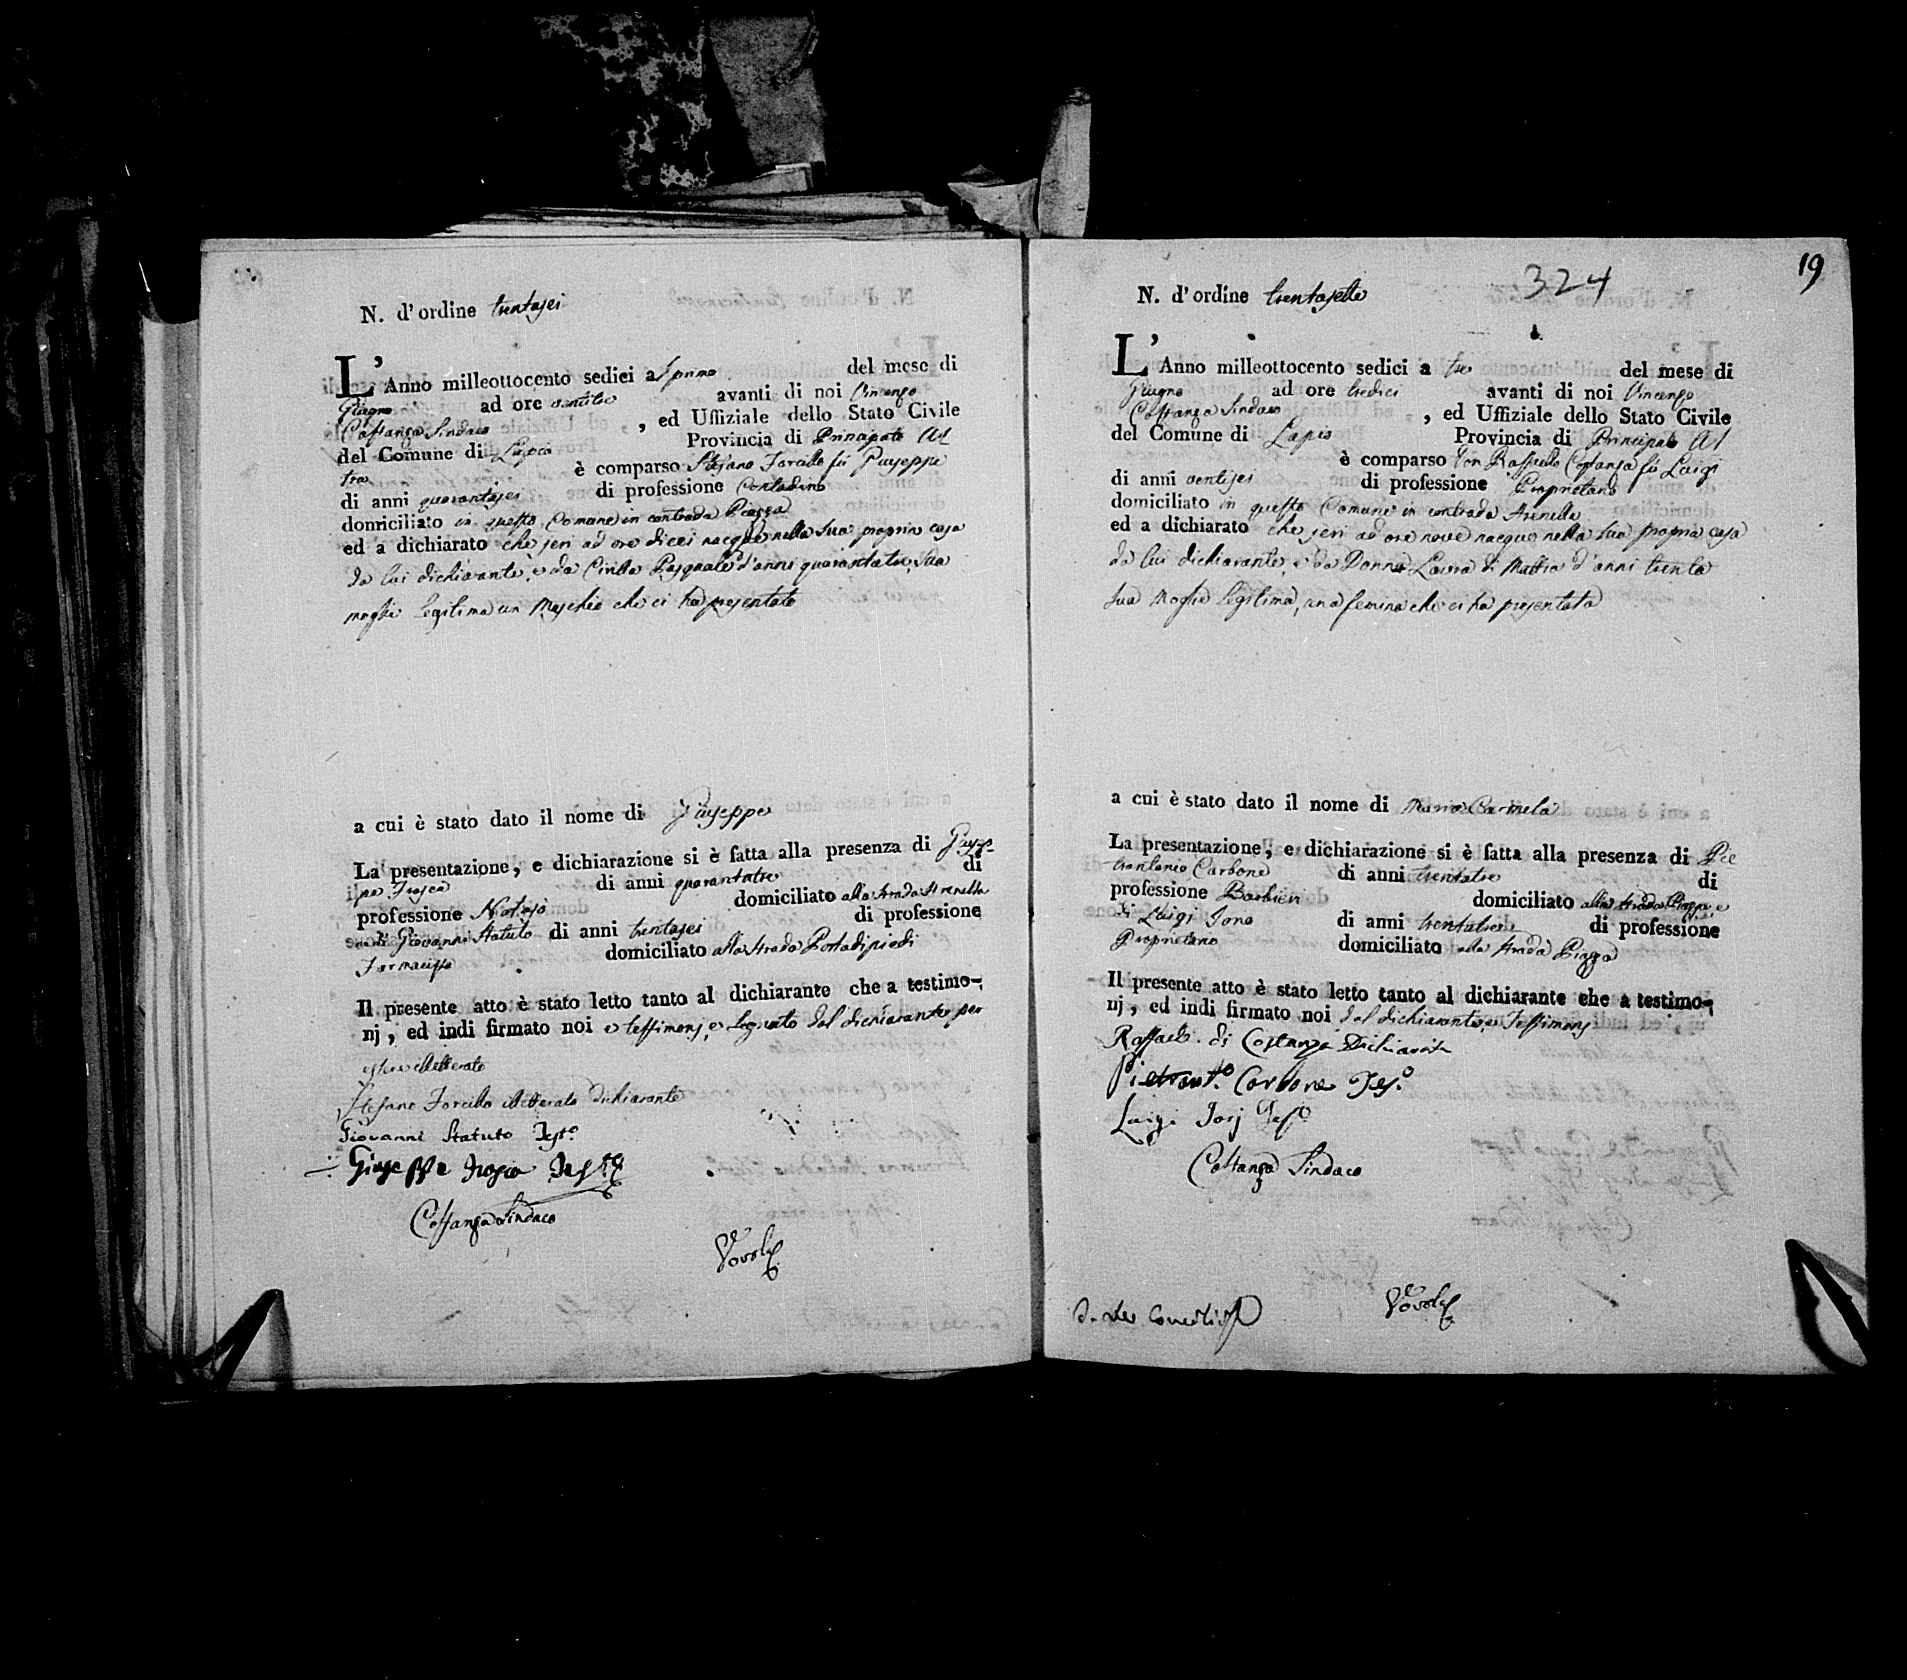 N. d'ordine trentasei
L'Anno milleottocento sedici a primo del mese di
Giugno ad ore ventitre avanti di noi Vincenzo
Costanza Sindaco , ed Uffiziale dello Stato Civile
del Comune di Lapio Provincia di Principato Ul
tra è comparso Stefano Forcillo fù Giuseppe
di anni quarantasei di professione Contadino
domiciliato in questo Comune in contrada Piazza
ed a dichiarato che jeri ad ore dieci nacque nella sua propria casa
da lui dichiarante, e da Civita Pasquale d'anni quarantatre, sua
moglie legitima un maschio che ci ha presentato
a cui è stato dato il nome di Giuseppe
La presentazione, e dichiarazione si è fatta alla presenza di Giusep-
pe di anni quarantatre di
professione Notajo domiciliato alla strada Arenella
e di Giovanni Statuto di anni trentasei di professione
Farmacista domiciliato alla strada Portadipiedi
Il presente atto è stato letto tanto al dichiarante che a testimo-
nj, ed indi firmato noi e testimonj, e segnato dal dichiarante per
essere illetterato
Stefano Forcillo illetterato dichiarante
Giovanni Statuto Test.o
Giuseppe Test.e
Costanza Sindaco
N. d'ordine trentasette
324
19
L'Anno milleottocento sedici a tre del mese di
Giugno ad ore tredici avanti di noi Vincenzo
Costanza Sindaco , ed Uffiziale dello Stato Civile
del Comune di Lapio Provincia di Principato Ul
è comparso Don Raffaele Costanza fù Luigi
di anni ventisei di professione Proprietario
domiciliato in questo Comune in contrada Arenella
ed a dichiarato che jeri ad ore nove nacque nella sua propria casa
da lui dichiarante, e da Donna Laura di Mattia d'anni trenta
sua moglie legitima, una femina che ci ha presentata
a cui è stato dato il nome di Maria Carmela
La presentazione, e dichiarazione si è fatta alla presenza di Pie
trantonio Carbone di anni trentatre di
professione Barbieri domiciliato alla strada Piazza e
di Luigi di anni trentatre di professione
Proprietario domiciliato alla strada Piazza
Il presente atto è stato letto tanto al dichiarante che a testimo-
nj, ed indi firmato noi dal dichiarante, e Testimonj
Raffaele di Costanza Dichiarante
Pietrant.o Carbone Tes.o
Luigi Test.o
Costanza Sindaco